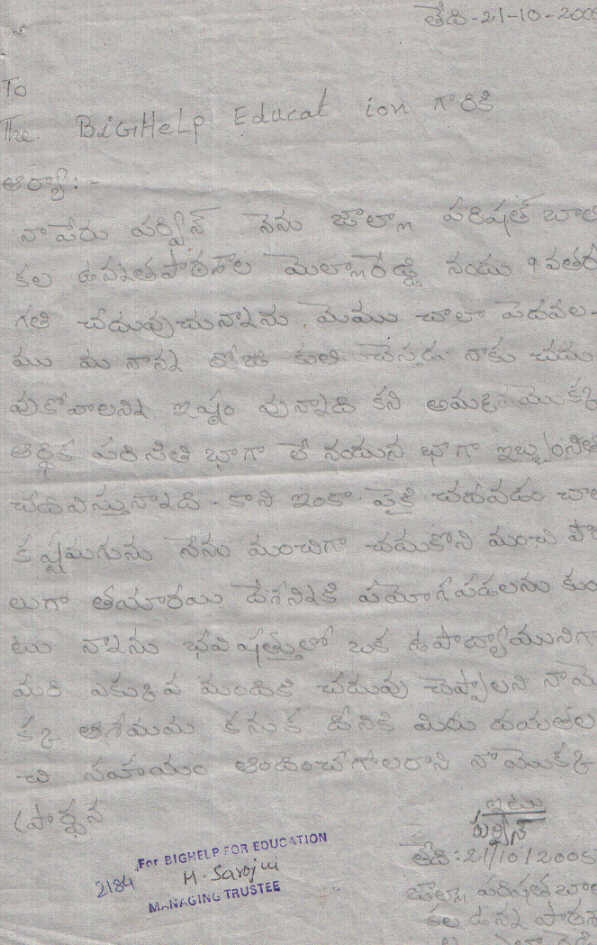 తేది-21-10-200
To
The. BiGHeLp Educat ion గారికి
ఆర్యా:-
నా పేరు పర్విన్ నేను జిల్లా పరిషత్ బాలి
కల ఉన్నతపాఠశాల నందు 9వతర
గతి చదువుచున్నాను. మేము చాలా పేదవల-
ము మా నాన్న రోజు కులి చేస్తడు నాకు చదు
వుకోవాలనిన ఇష్టం వున్నాది కని
ఆర్థిక పరిసితి భాగా లే నందున భాగా
చదివిస్తున్నాది. కాని ఇంకా పైకి చదువడం చాల
కష్టమగును నేను మంచిగా చదుకొని మంచి పౌ
లుగా తయారయి దేశనికి వుపయోగపడలను కుం
టు నాను భవిషత్తులో ఒక ఉపాద్యాయునిగా
మరి ఎకుక్కవ మందికి చదువు చెప్పాలని నాయె
క్క ఆశయము కనుక దీనికి మిరు దయతల
చి సహాయం అందించగలరాని నాయొక్క
ప్రార్థన
ఇటు
పర్విన్
తేది:21/10/2005
జిల్లా పరిషత బాల
కల ఉన్న పాఠశ
For BIGHELP FOR EDUCATION
2184 M. Sarojini
MANAGING TRUSTEE